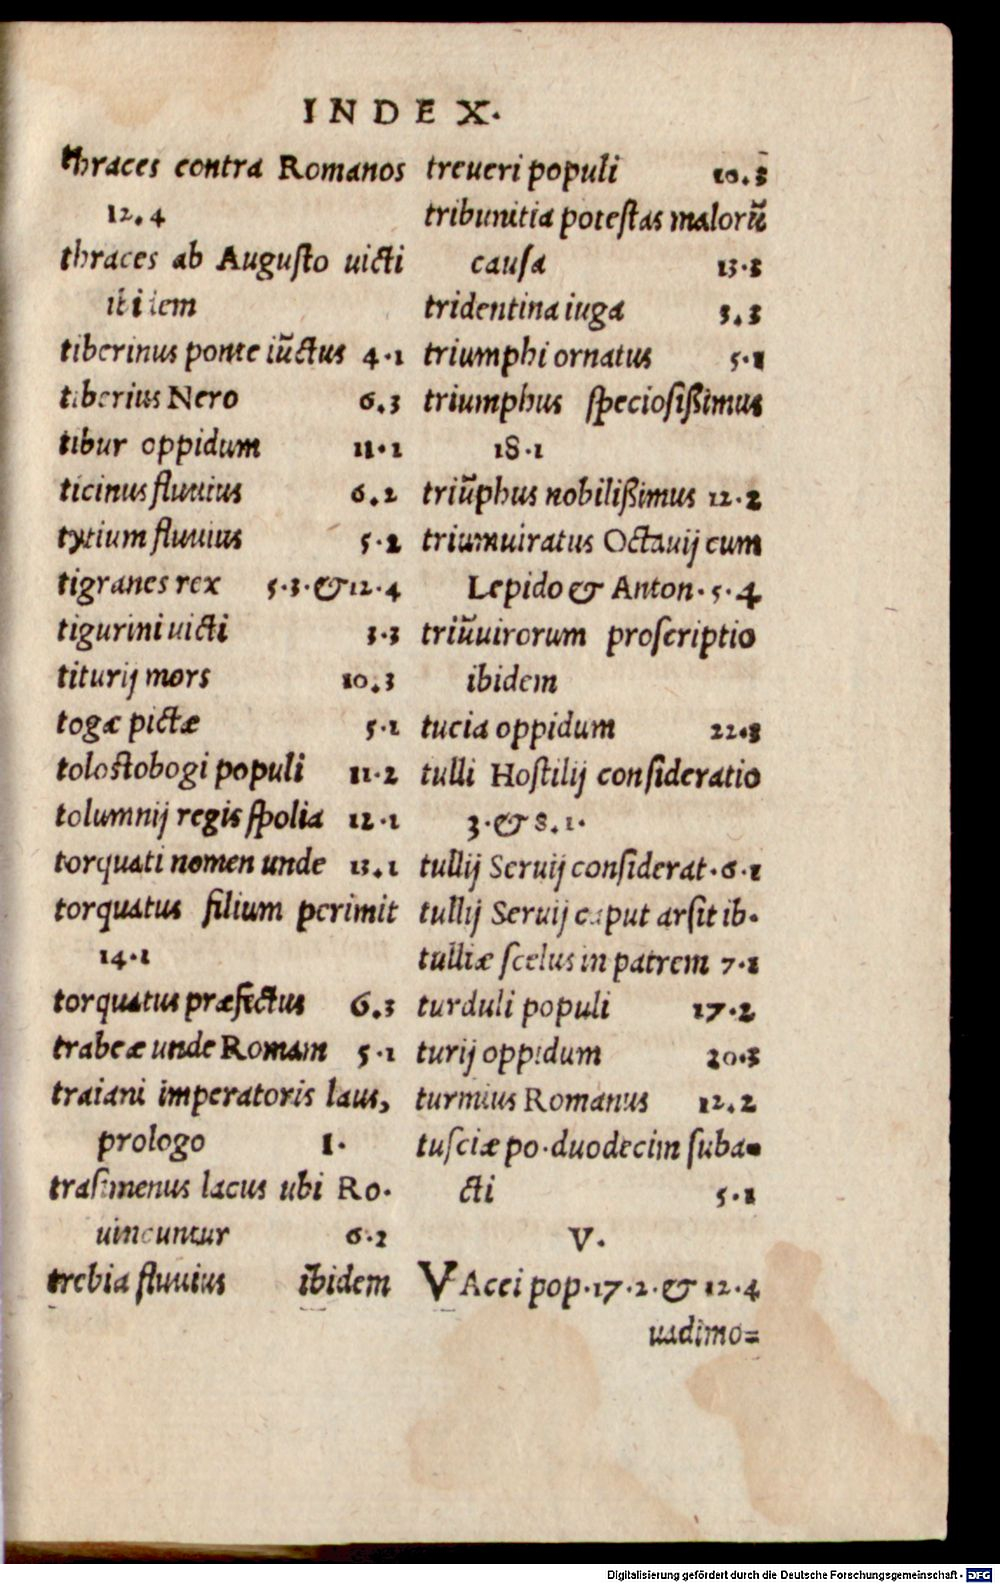 INDEX.
thraces contra Romanos
12.4
thraces ab Augusto uicti
ibidem
tiberinus ponte iūctus 4.1
tiberius Nero 6.3
tibur oppidum 11.1
ticinus fluuius 6.2
tytium fluuius 5.2
tigranes rex 5.3.&12.4
tigurini uicti 3.3
titurij mors 10.3
togæ pictæ 5.1
tolostobogi populi 11.2
tolumnij regis spolia 12.1
torquati nomen unde 13.1
torquatus filium perimit
14.1
torquatus præfectus 6.3
trabeæ unde Romam 5.1
traiani imperatoris laus,
prologo 1.
trasimenus lacus ubi Ro.
uincuntur 6.2
trebia fluuius ibidem
treueri populi 10.3
tribunitia potestas malorū
causa 13.3
tridentina iuga 3.3
triumphi ornatus 5.1
triumphus speciosißimus
18.1
triūphus nobilißimus 12.2
triumuiratus Octauij cum
Lepido & Anton. 5.4
triūuirorum proscriptio
ibidem
tucia oppidum 22.3
tulli Hostilij consideratio
3.& 8.1.
tullij Seruij considerat. 6.1
tullij Seruij caput arsit ib.
tulliæ scelus in patrem 7.1
turduli populi 17.2
turij oppidum 20.3
turmius Romanus 12.2
tusciæ po. duodecim suba-
cti 5.1
V.
VAcei pop. 17.2.& 12.4
uadimo=
Digitalisierung gefördert durch die Deutsche Forschungsgemeinschaft - DFG